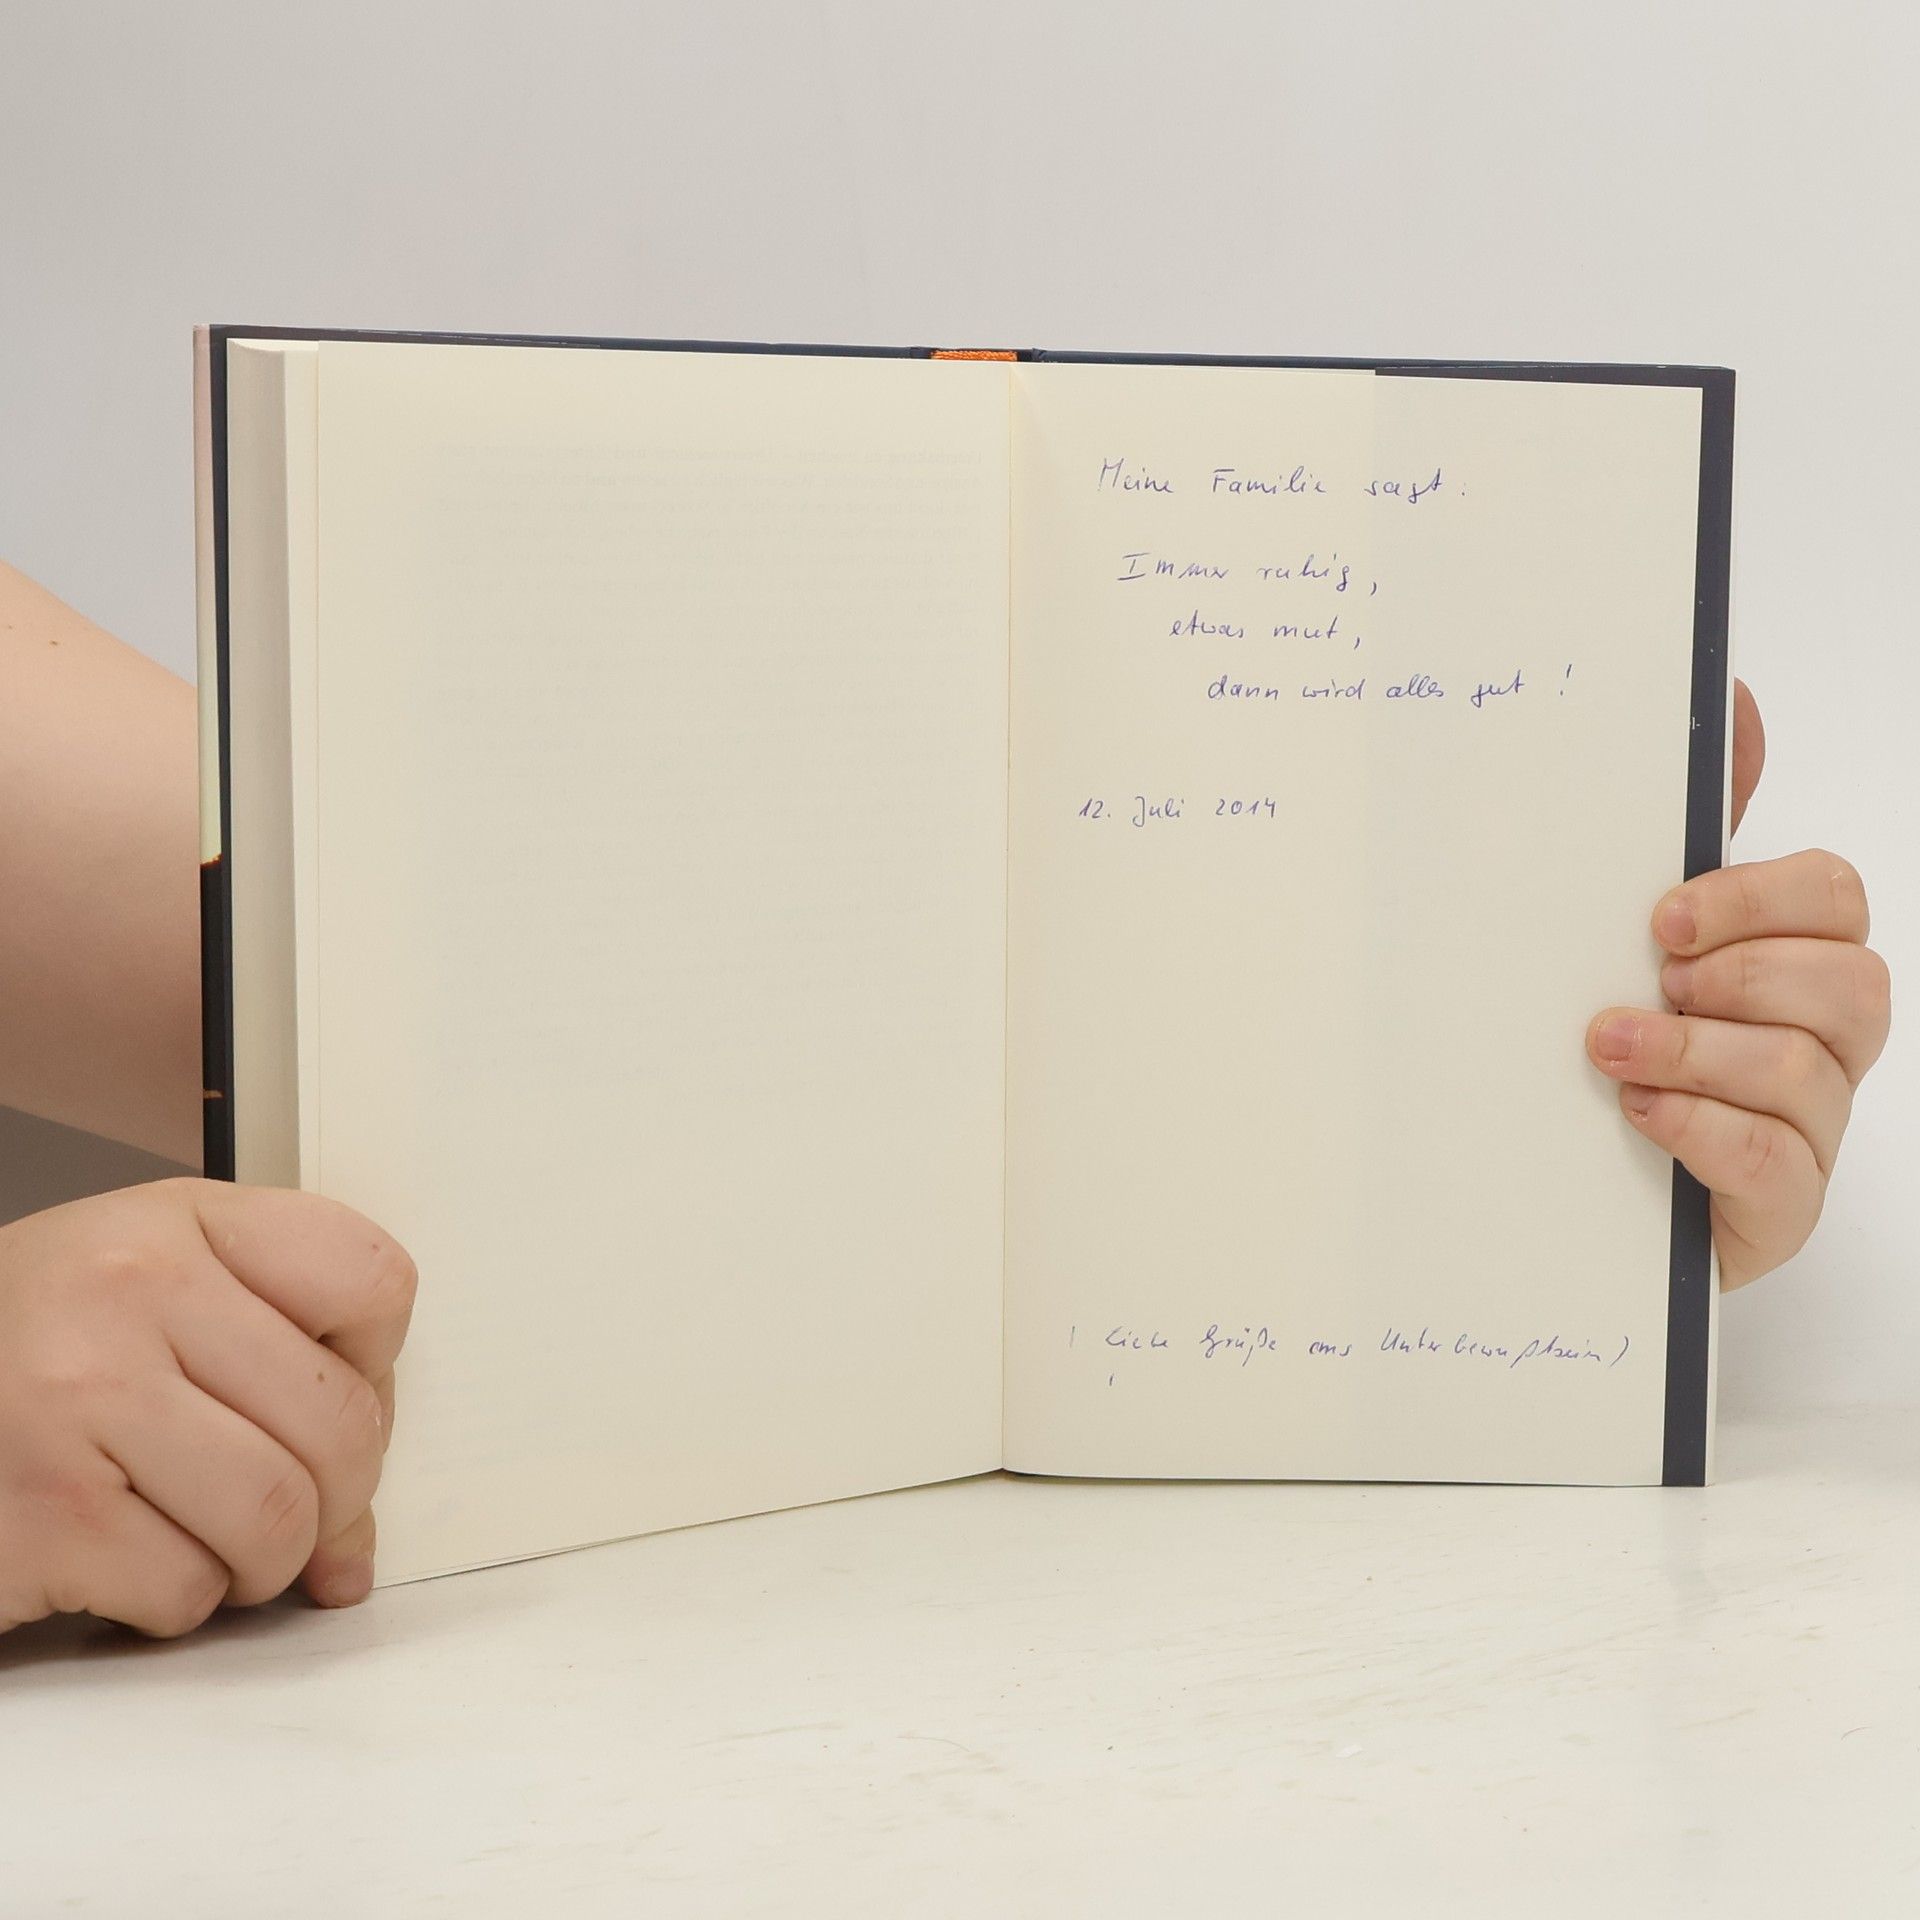 Meine Familie sagt:
Immer ruhig,
etwas mut,
dann wird alles gut!
12. Juli 2014
Liebe Grüße ans Unterbewußtsein)